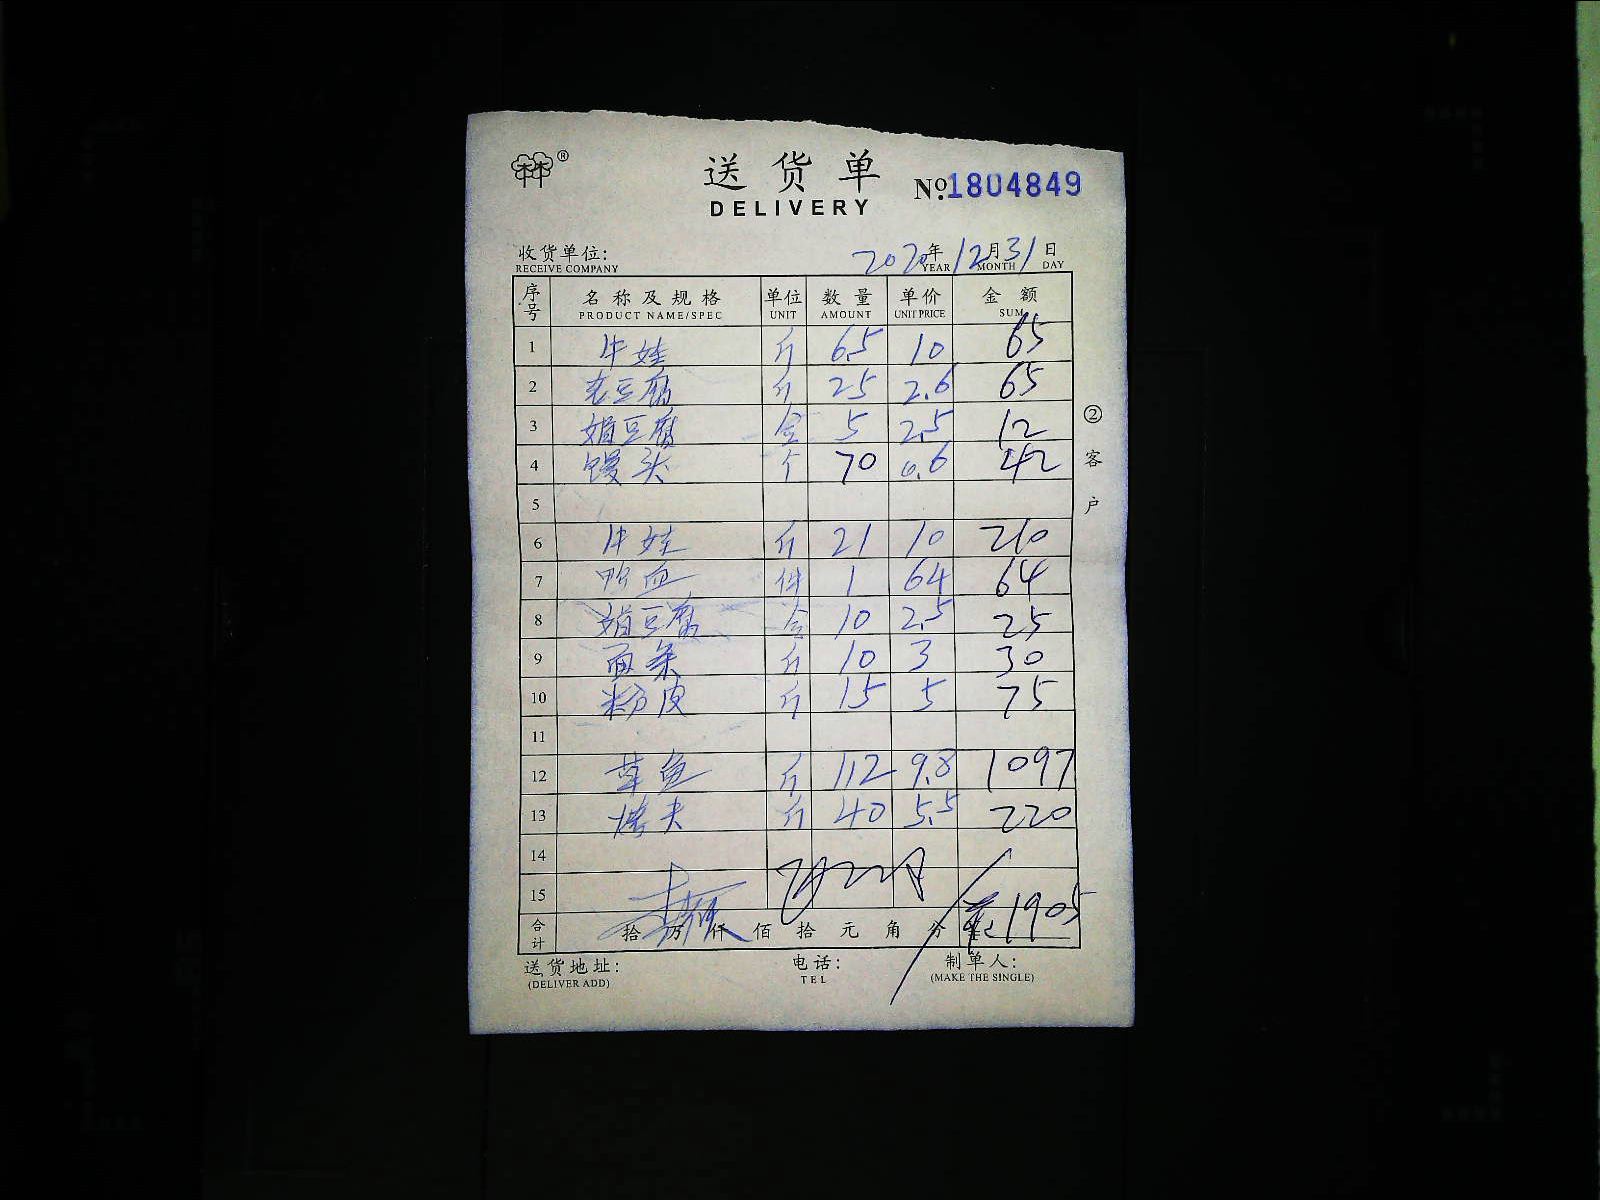 林林®
送货单
DELIVERY
№.1804849
收货单位:
RECEIVE COMPANY
2020年12月31日
YEAR MONTH DAY
序号 名称及规格 单位 数量 单价 金额
PRODUCT NAME/SPEC UNIT AMOUNT UNIT PRICE SUM
1 牛娃 斤 6.5 10 65
2 老豆腐 斤 25 2.6 65
3 娟豆腐 合 5 2.5 12
4 馒头 个 70 0.6 42
5
6 牛娃 斤 21 10 210
7 鸭血 件 1 64 64
8 娟豆腐 合 10 2.5 25
9 面条 斤 10 3 30
10 粉皮 斤 15 5 75
11
12 草鱼 斤 112 9.8 1097
13 烤夫 斤 40 5.5 220
14
15
合计 拾 万 仟 佰 拾 元 角 分 1905
送货地址:
(DELIVER ADD)
电话:
TEL
制单人:
(MAKE THE SINGLE)
②客户